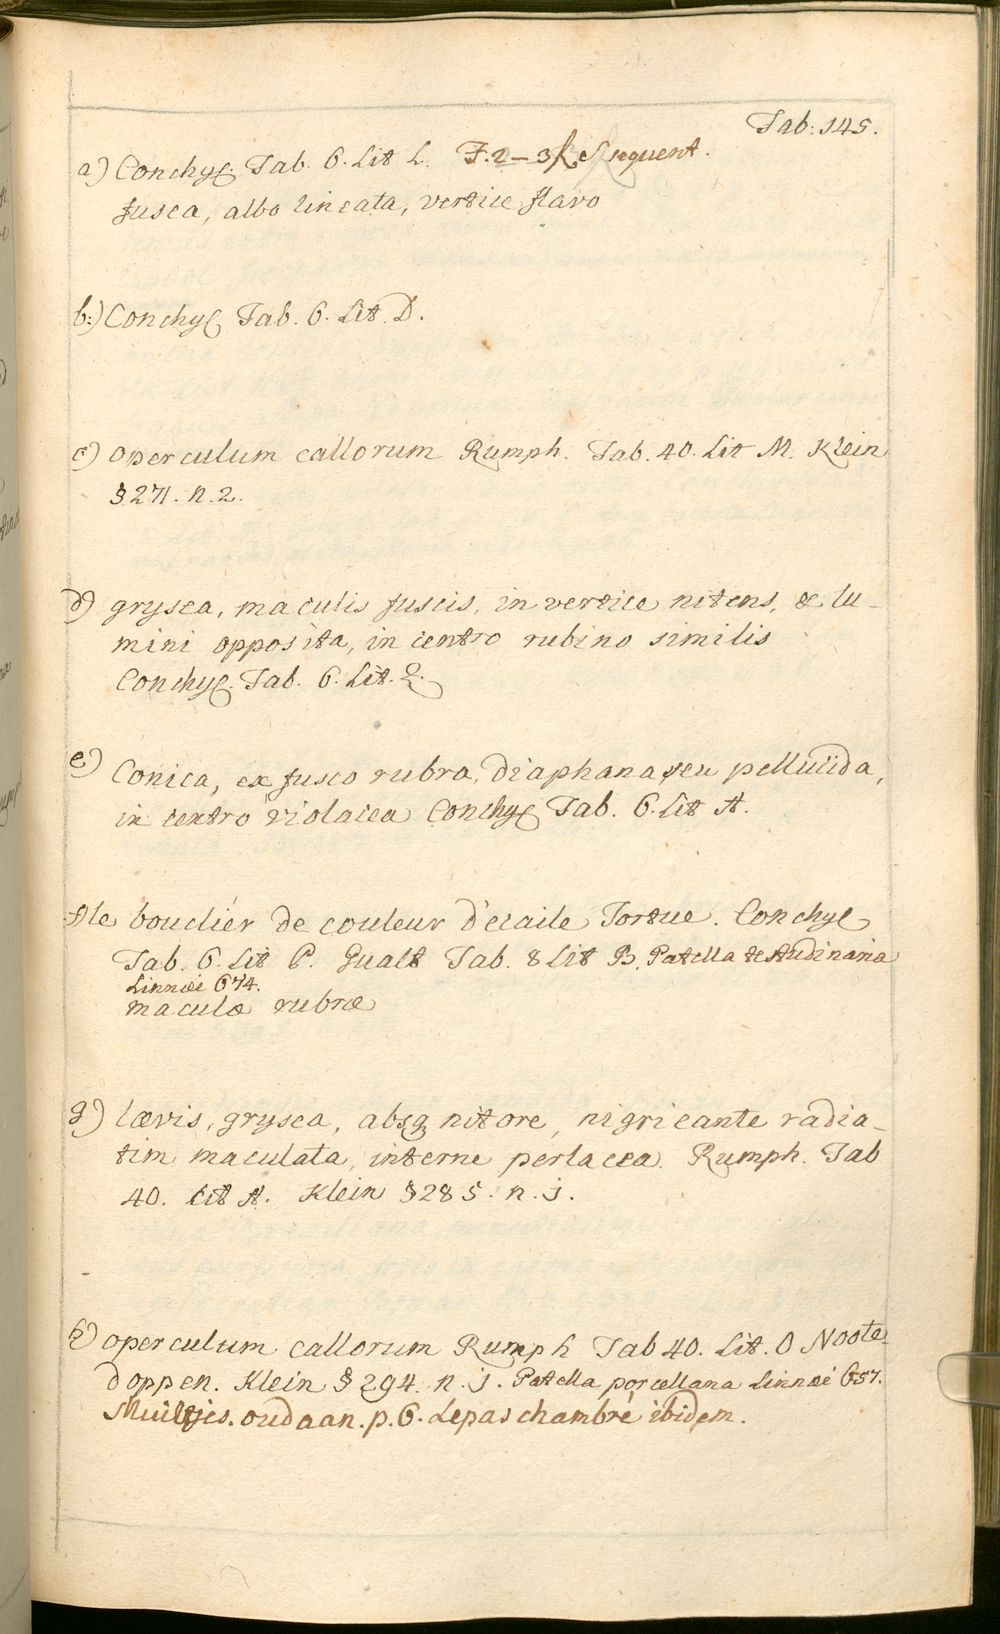 Tab: 145.
a) Conchyl. Tab. 6. Lit L. F. 2 - 3 & sequent.
fusca, albo lineata, vertice flavo
b:) Conchyl Tab. 6. Lit. D.
c) operculum callorum Rumph. Tab. 40. Lit M. Klein
§ 271. n. 2.
d) grysea, maculis fuscis, in vertice nitens, & lu-
mini opposita, in centro rubino similis
Conchyl. Tab. 6. Lit. Q.
e) Conica, ex fusco rubra, diaphana seu pellucida,
in centro violacea Conchyl Tab. 6. Lit A.
f) le bouclier de couleur d'ecaile Tortue. Conchyl
Tab. 6. Lit P. Gualt Tab. 8 Lit B. Patella testudinaria
Linnæi 674.
maculæ rubræ
g) lævis, grysea, absq nitore, nigricante radia-
tim maculata, interne perlacea. Rumph. Tab
40. Lit A. Klein § 285. n. j.
h) operculum callorum Rumph Tab 40. Lit. O Noote-
doppen. Klein § 294. n. j. Patella porcellana Linnæi 657.
Muiltjes. oudaan. p. 6. Lepas chambré ibidem.